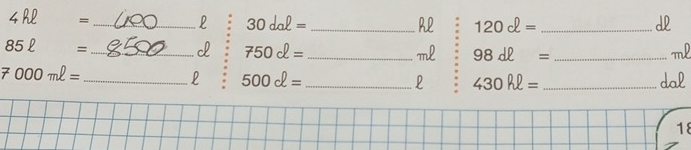 4 hl = 400 l
85 l = 8500 cl
7 000 ml = l
30 dal = hl
750 cl = ml
500 cl = l
120 cl = dl
98 dl = ml
430 hl = dal
18